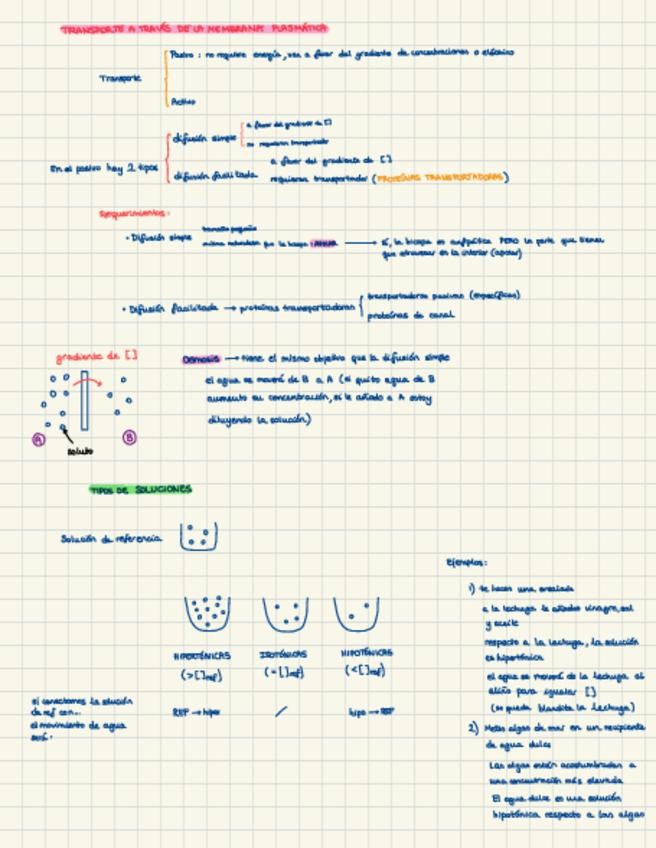 TRANSPORTE A TRAVÉS DE LA MEMBRANA PLASMÁTICA
Transporte
Pasivo : no requiere energía, va a favor del gradiente de concentraciones o eléctrico
Activo
En el pasivo hay 2 tipos
difusión simple
a favor del gradiente de []
no requieren transportador
difusión facilitada
a favor del gradiente de []
requieren transportador (PROTEÍNAS TRANSPORTADORAS)
Requerimientos:
• Difusión simple
tamaño pequeño
misma naturaleza que la bicapa
sí, la bicapa es anfipática PERO la parte que tienen
que atravesar es la interior (apolar)
• Difusión facilitada → proteínas transportadoras
transportadoras pasivas (específicas)
proteínas de canal
gradiente de []
A
B
soluto
Osmosis → tiene el mismo objetivo que la difusión simple
el agua se moverá de B a A (si quito agua de B
aumento su concentración, si le añado a A estoy
diluyendo la solución)
TIPOS DE SOLUCIONES
Solución de referencia
HIPERTÓNICAS
(>[]ref)
ISOTÓNICAS
(=[]ref)
HIPOTÓNICAS
(<[]ref)
si conectamos la solución
de ref con...
el movimiento de agua
será:
REF → hiper
/
hipo → REF
Ejemplos:
1) te haces una ensalada
a la lechuga le añades vinagre, sal
y aceite
respecto a la lechuga, la solución
es hipertónica
el agua se moverá de la lechuga al
aliño para igualar []
(se queda blandita la lechuga)
2) Metes algas de mar en un recipiente
de agua dulce
Las algas están acostumbradas a
una concentración más elevada
El agua dulce es una solución
hipotónica respecto a las algas